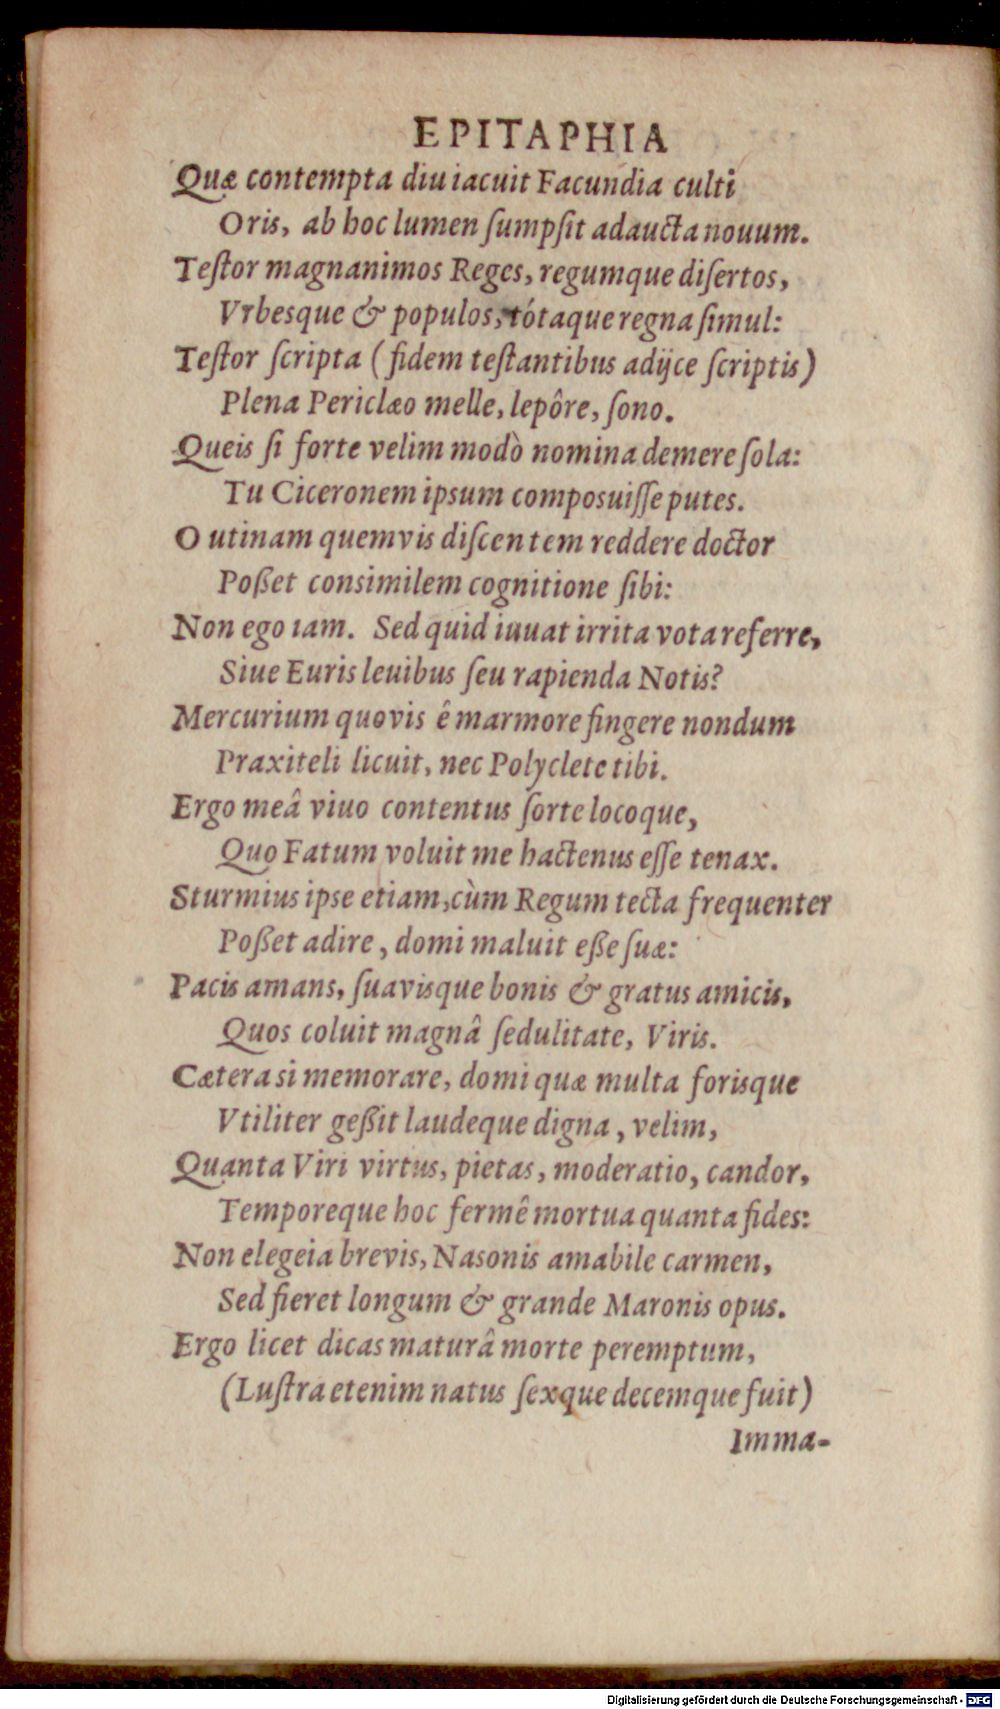 EPITAPHIA
Quæ contempta diu iacuit Facundia culti
Oris, ab hoc lumen ſumpſit adaucta nouum.
Teſtor magnanimos Reges, regumque diſertos,
Vrbesque & populos, tótaque regna ſimul:
Teſtor ſcripta (fidem teſtantibus adijce ſcriptis)
Plena Periclæo melle, lepôre, ſono.
Queis ſi forte velim modò nomina demere ſola:
Tu Ciceronem ipsum composuiſſe putes.
O utinam quemvis diſcentem reddere doctor
Poßet consimilem cognitione ſibi:
Non ego iam. Sed quid iuuat irrita vota referre,
Siue Euris leuibus ſeu rapienda Notis?
Mercurium quovis ê marmore fingere nondum
Praxiteli licuit, nec Polyclete tibi.
Ergo meâ viuo contentus ſorte locoque,
Quo Fatum voluit me hactenus eſſe tenax.
Sturmius ipse etiam, cùm Regum tecta frequenter
Poßet adire, domi maluit eße ſuæ:
Pacis amans, ſuavisque bonis & gratus amicis,
Quos coluit magnâ ſedulitate, Viris.
Cætera si memorare, domi quæ multa forisque
Vtiliter geßit laudeque digna, velim,
Quanta Viri virtus, pietas, moderatio, candor,
Temporeque hoc fermê mortua quanta fides:
Non elegeia brevis, Nasonis amabile carmen,
Sed fieret longum & grande Maronis opus.
Ergo licet dicas maturâ morte peremptum,
(Luſtra etenim natus ſexque decemque fuit)
Imma-
Digitalisierung gefördert durch die Deutsche Forschungsgemeinschaft - DFG